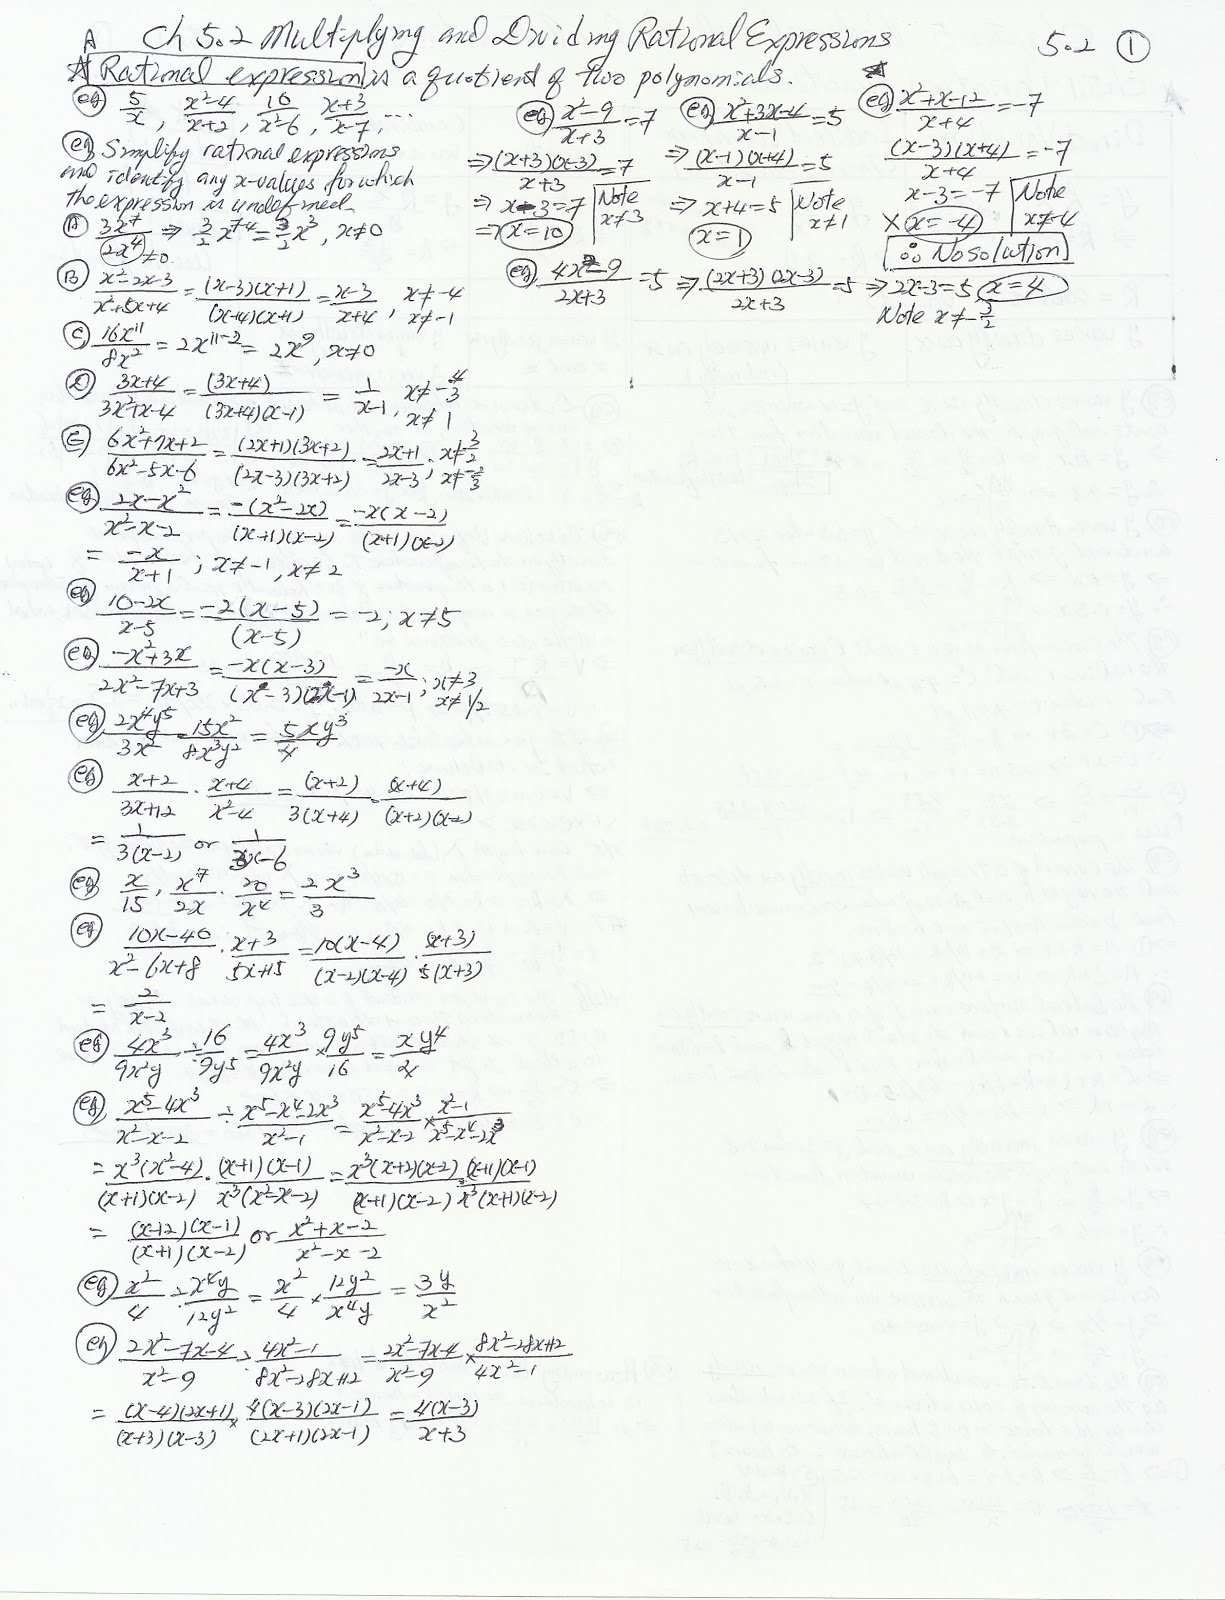 A Ch 5.2 Multiplying and Dividing Rational Expressions 5.2 ①
☆ Rational expression is a quotient of two polynomials.
eg 5/x, (x²-4)/(x+2), 10/(x²-6), (x+3)/(x-7), ...
eg Simplify rational expressions
and identify any x-values for which
the expression is undefined.
A 3x⁷/2x⁴ ⇒ 3/2 x⁷⁻⁴ = 3/2 x³, x≠0
≠0
B (x²-2x-3)/(x²+5x+4) = (x-3)(x+1)/(x+4)(x+1) = (x-3)/(x+4), x≠-4
x≠-1
C 16x¹¹/8x² = 2x¹¹⁻² = 2x⁹, x≠0
D (3x+4)/(3x²+x-4) = (3x+4)/(3x+4)(x-1) = 1/(x-1), x≠-4/3
x≠1
E (6x²+7x+2)/(6x²-5x-6) = (2x+1)(3x+2)/(2x-3)(3x+2) = (2x+1)/(2x-3); x≠3/2
x≠-2/3
eg (2x-x²)/(x²-x-2) = -(x²-2x)/(x+1)(x-2) = -x(x-2)/(x+1)(x-2)
= -x/(x+1); x≠-1, x≠2
eg (10-2x)/(x-5) = -2(x-5)/(x-5) = -2; x≠5
eg (-x²+3x)/(2x²-7x+3) = -x(x-3)/(x-3)(2x-1) = -x/(2x-1); x≠3
x≠1/2
eg 2x⁴y⁵/3x² · 15x²/8x³y² = 5xy³/4
eg (x+2)/(3x+12) · (x+4)/(x²-4) = (x+2)/3(x+4) · (x+4)/(x+2)(x-2)
= 1/3(x-2) or 1/(3x-6)
eg x/15 · x⁷/2x · 20/x⁴ = 2x³/3
eg (10x-40)/(x²-6x+8) · (x+3)/(5x+15) = 10(x-4)/(x-2)(x-4) · (x+3)/5(x+3)
= 2/(x-2)
eg 4x³/9x²y ÷ 16/9y⁵ = 4x³/9x²y × 9y⁵/16 = xy⁴/4
eg (x⁵-4x³)/(x²-x-2) ÷ (x⁵-x⁴-2x³)/(x²-1) = (x⁵-4x³)/(x²-x-2) × (x²-1)/(x⁵-x⁴-2x³)
= x³(x²-4)/(x+1)(x-2) · (x+1)(x-1)/x³(x²-x-2) = x³(x+2)(x-2)/(x+1)(x-2) · (x+1)(x-1)/x³(x+1)(x-2)
= (x+2)(x-1)/(x+1)(x-2) or (x²+x-2)/(x²-x-2)
eg x²/4 ÷ x⁴y/12y² = x²/4 × 12y²/x⁴y = 3y/x²
eg (2x²-7x-4)/(x²-9) ÷ (4x²-1)/(8x²-28x+12) = (2x²-7x-4)/(x²-9) × (8x²-28x+12)/(4x²-1)
= (x-4)(2x+1)/(x+3)(x-3) × 4(x-3)(2x-1)/(2x+1)(2x-1) = 4(x-3)/(x+3)
eg (x²-9)/(x+3) = 7
⇒ (x+3)(x-3)/(x+3) = 7
⇒ x-3=7 Note
⇒ x=10 x≠3
eg (x²+3x-4)/(x-1) = 5
⇒ (x-1)(x+4)/(x-1) = 5
⇒ x+4=5 Note
x=1 x≠1
☆
eg (x²+x-12)/(x+4) = -7
(x-3)(x+4)/(x+4) = -7
x-3=-7 Note
× x=-4 x≠-4
∴ No solution
eg (4x²-9)/(2x+3) = 5 ⇒ (2x+3)(2x-3)/(2x+3) = 5 ⇒ 2x-3=5 x=4
Note x≠-3/2